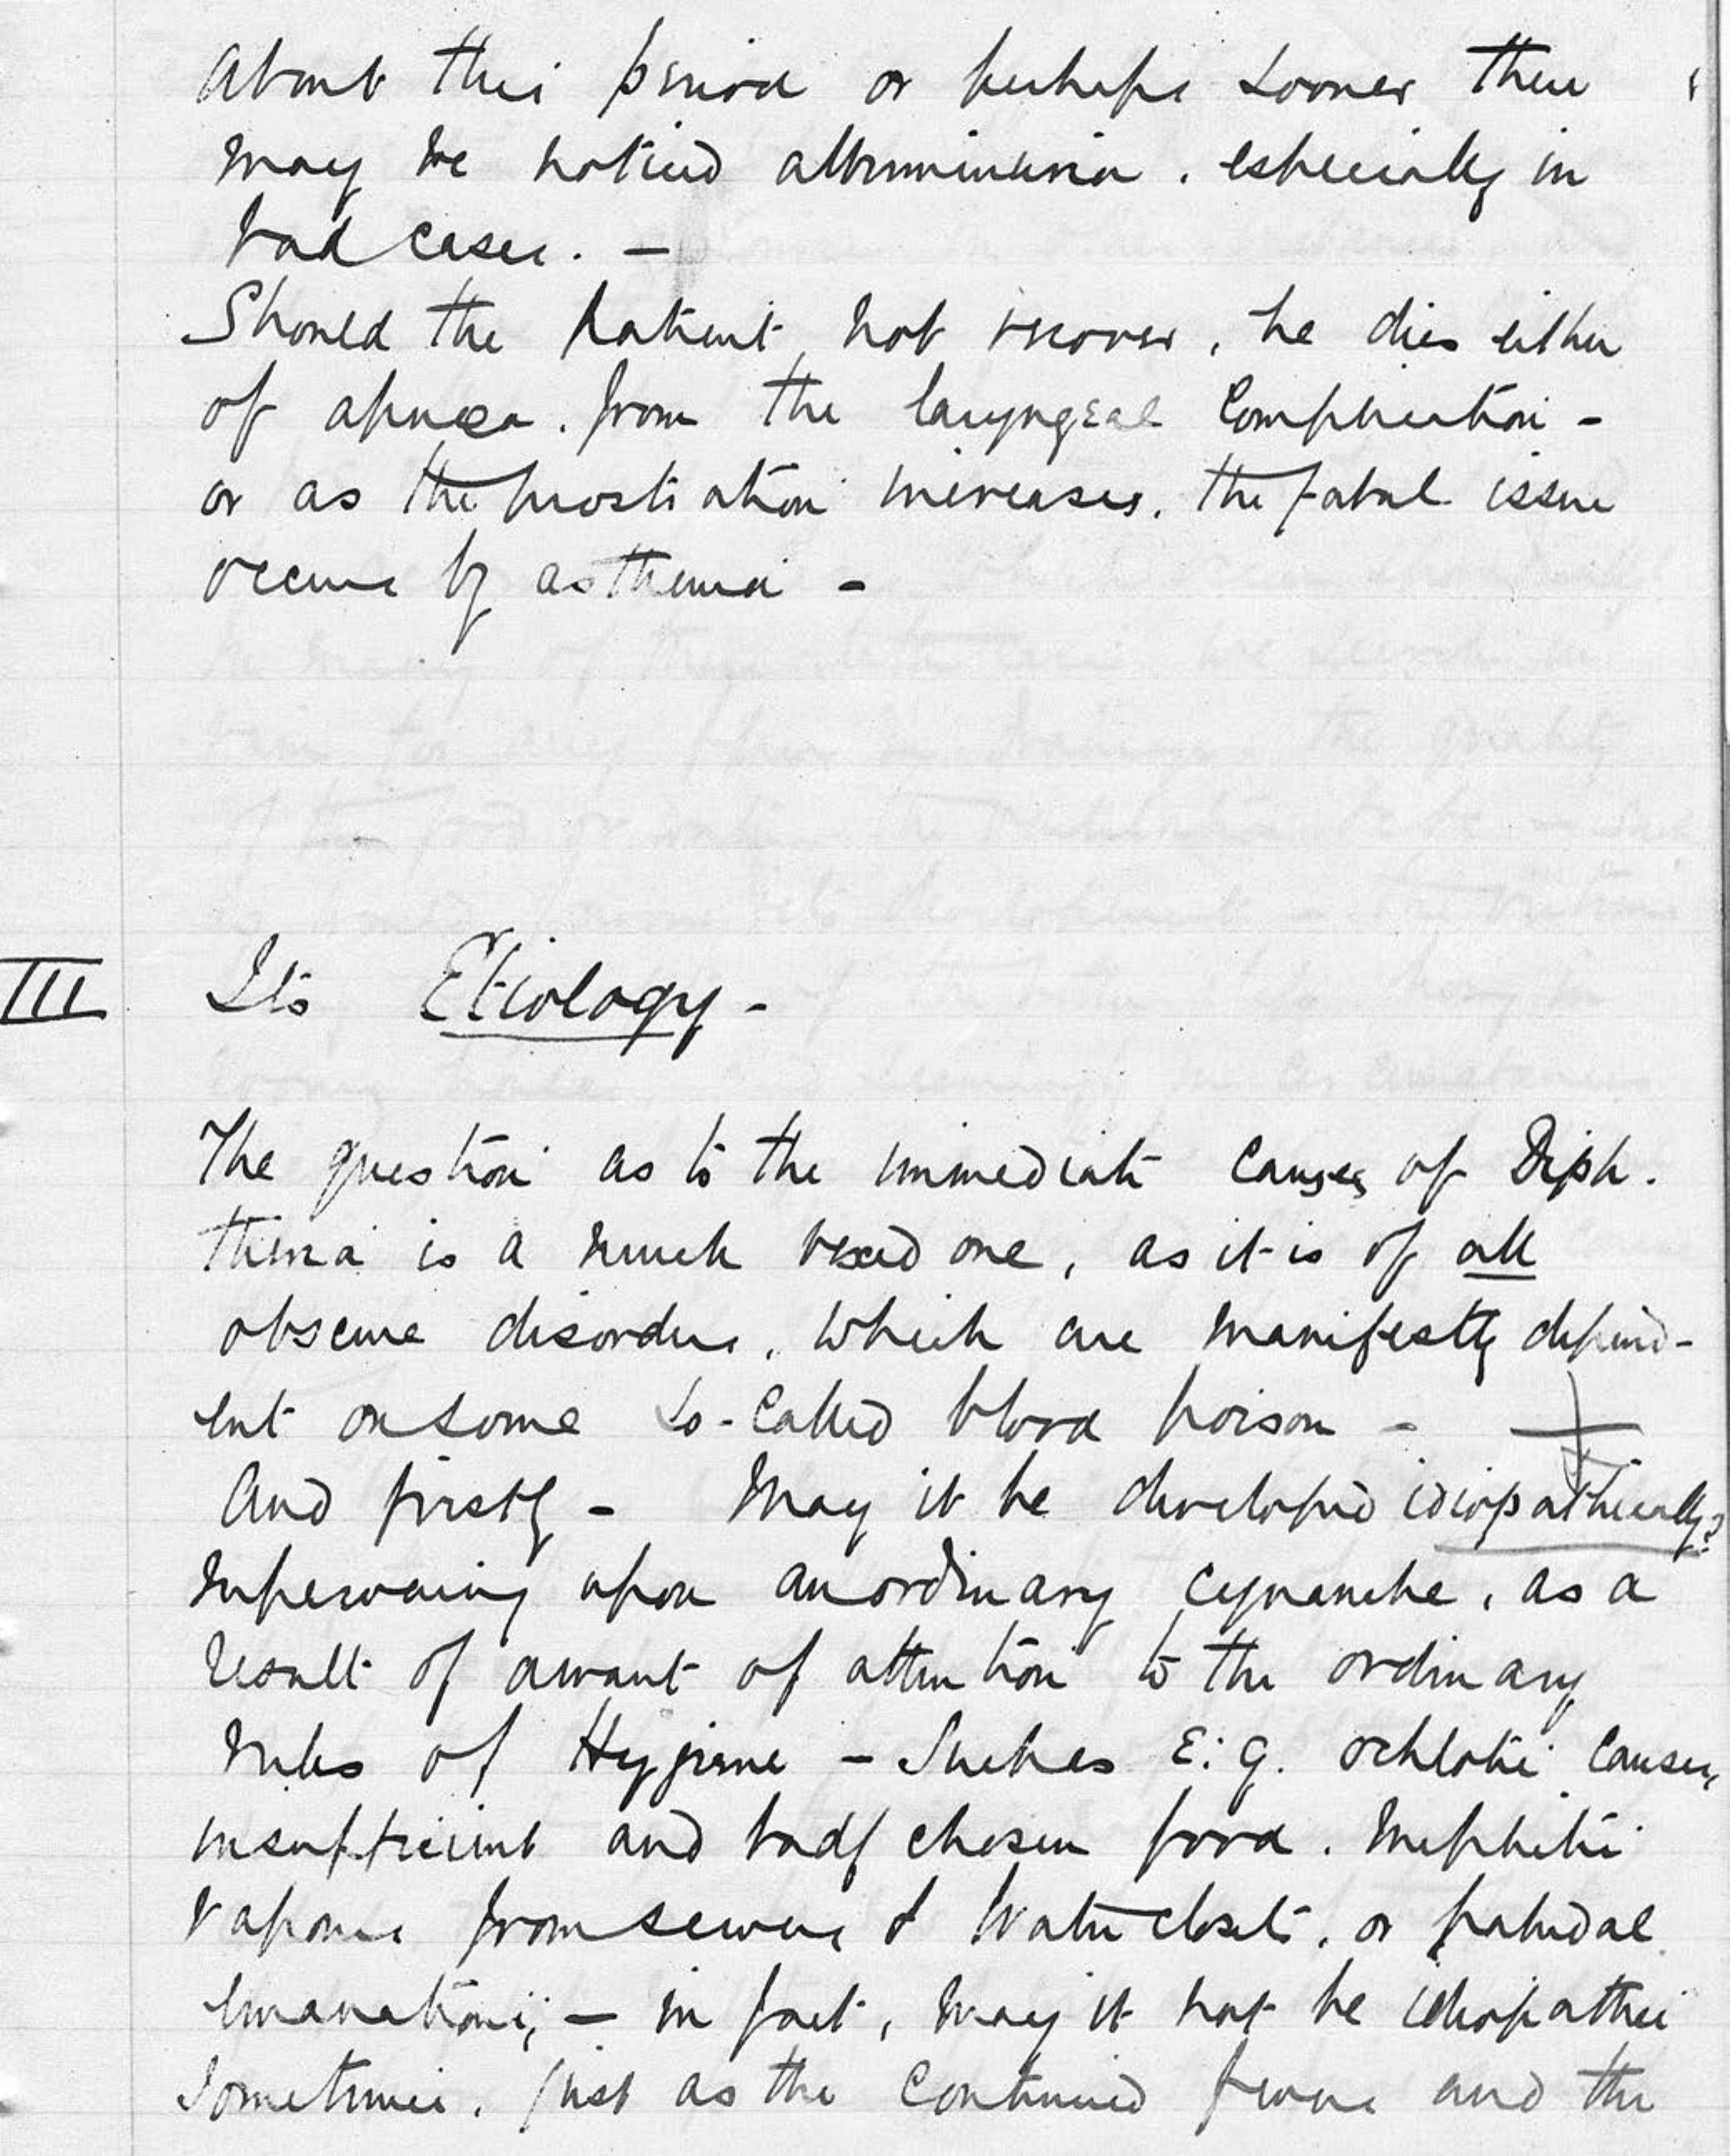 About this period or perhaps sooner there
may be noticed albuminuria. especially in
bad cases. –
Should the patient, not recover, he dies either
of apnœa. from the laryngeal Complication –
or as the prostration increases. the fatal issue
occurs by asthenia –
III Its Etiology –
The question as to the immediate causes of Diph.
theria is a much vexed one, as it is of all
obscure disorders, which are manifestly depend-
ent on some so-called blood poison –
And firstly – May it be developed idiopathically?
supervening upon an ordinary cynanche, as a
result of a want of attention to the ordinary
rules of Hygiene – Such as E.g. ochlotic causes,
insufficient and badly chosen food. Mephitic
vapours from sewers & Water closets, or paludal
emanations; – in fact, may it not be idiopathic
sometimes. just as the continued fevers and the